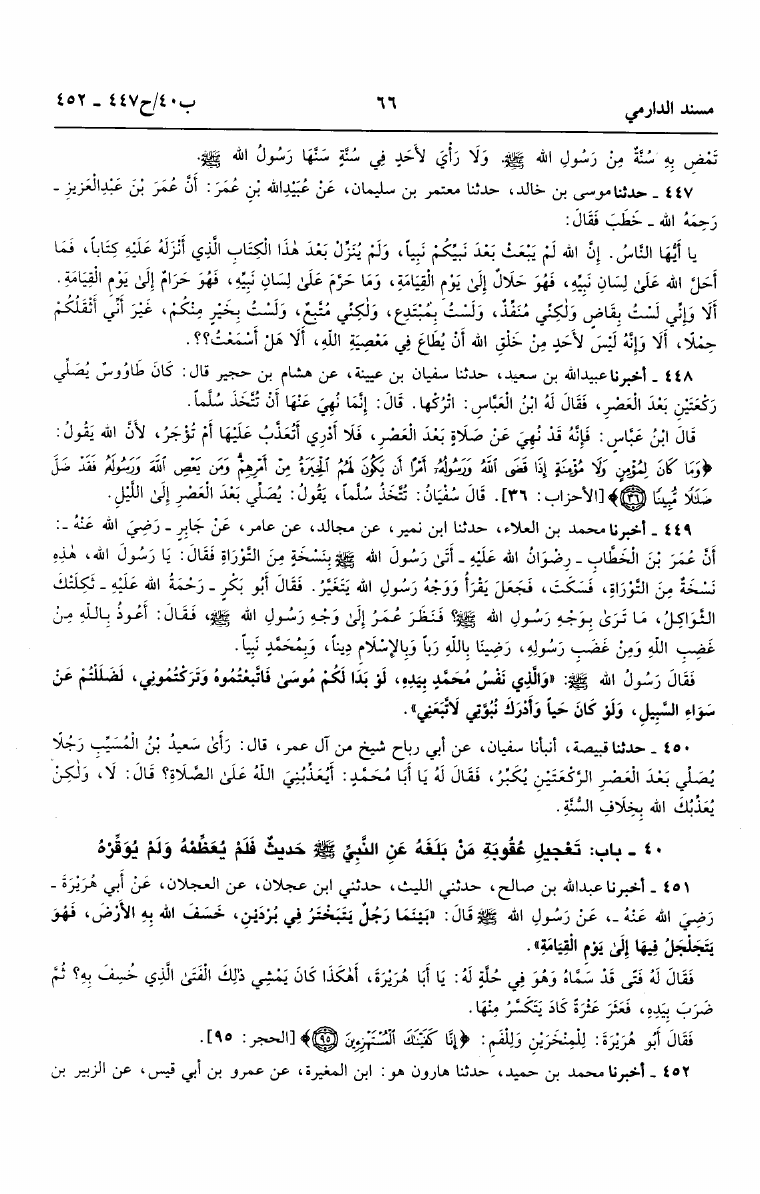 مسند الدارمي ٦٦ ب٤٠/ح٤٤٧ ـ ٤٥٢
تَمْضِ بِهِ سُنَّةٌ مِنْ رَسُولِ الله ﷺ. وَلَا رَأْيَ لأَحَدٍ فِي سُنَّةٍ سَنَّهَا رَسُولُ الله ﷺ.
٤٤٧ ـ حدثنا موسى بن خالد، حدثنا معتمر بن سليمان، عَنْ عُبَيْدِالله بْنِ عُمَرَ: أَنَّ عُمَرَ بْنَ عَبْدِالْعَزِيزِ ـ
رَحِمَهُ الله ـ خَطَبَ فَقَالَ:
يا أَيُّهَا النَّاسُ. إِنَّ الله لَمْ يَبْعَثْ بَعْدَ نَبِيِّكُمْ نَبِياً، وَلَمْ يُنَزِّلْ بَعْدَ هٰذَا الْكِتَابِ الَّذِي أَنْزَلَهُ عَلَيْهِ كِتَاباً، فَمَا
أَحَلَّ الله عَلَىٰ لِسَانِ نَبِيِّهِ، فَهُوَ حَلَالٌ إِلَىٰ يَوْمِ الْقِيَامَةِ، وَمَا حَرَّمَ عَلَىٰ لِسَانِ نَبِيِّهِ، فَهُوَ حَرَامٌ إِلَىٰ يَوْمِ الْقِيَامَةِ.
أَلَا وَإِنِّي لَسْتُ بِقَاضٍ وَلٰكِنِّي مُنَفِّذٌ، وَلَسْتُ بِمُبْتَدِعٍ، وَلٰكِنِّي مُتَّبِعٌ، وَلَسْتُ بِخَيْرٍ مِنْكُمْ، غَيْرَ أَنِّي أَثْقَلُكُمْ
حِمْلًا، أَلَا وَإِنَّهُ لَيْسَ لأَحَدٍ مِنْ خَلْقِ الله أَنْ يُطَاعَ فِي مَعْصِيَةِ اللهِ، أَلَا هَلْ أَسْمَعْتُ؟؟.
٤٤٨ ـ أخبرنا عبيدالله بن سعيد، حدثنا سفيان بن عيينة، عن هشام بن حجير قال: كَانَ طَاوُوسٌ يُصَلِّي
رَكْعَتَيْنِ بَعْدَ الْعَصْرِ، فَقَالَ لَهُ ابْنُ الْعَبَّاسِ: اتْرُكْهَا. قَالَ: إِنَّمَا نُهِيَ عَنْهَا أَنْ تُتَّخَذَ سُلَّماً.
قَالَ ابْنُ عَبَّاسٍ: فَإِنَّهُ قَدْ نُهِيَ عَنْ صَلَاةٍ بَعْدَ الْعَصْرِ، فَلَا أَدْرِي أَتُعَذَّبُ عَلَيْهَا أَمْ تُؤْجَرُ، لأَنَّ الله يَقُولُ:
﴿وَمَا كَانَ لِمُؤْمِنٍ وَلَا مُؤْمِنَةٍ إِذَا قَضَى ٱللَّهُ وَرَسُولُهُۥٓ أَمْرًا أَن يَكُونَ لَهُمُ ٱلْخِيَرَةُ مِنْ أَمْرِهِمْ وَمَن يَعْصِ ٱللَّهَ وَرَسُولَهُۥ فَقَدْ ضَلَّ
ضَلَٰلًا مُّبِينًا ٣٦﴾ [الأحزاب: ٣٦]. قَالَ سُفْيَانُ: تُتَّخَذُ سُلَّماً، يَقُولُ: يُصَلِّي بَعْدَ الْعَصْرِ إِلَىٰ اللَّيْلِ.
٤٤٩ ـ أخبرنا محمد بن العلاء، حدثنا ابن نمير، عن مجالد، عن عامر، عَنْ جَابِرٍ ـ رَضِيَ الله عَنْهُ ـ:
أَنَّ عُمَرَ بْنَ الْخَطَّابِ ـ رِضْوَانُ الله عَلَيْهِ ـ أَتَىٰ رَسُولَ الله ﷺ بِنَسْخَةٍ مِنَ التَّوْرَاةِ فَقَالَ: يَا رَسُولَ الله، هٰذِهِ
نَسْخَةٌ مِنَ التَّوْرَاةِ، فَسَكَتَ، فَجَعَلَ يَقْرَأُ وَوَجْهُ رَسُولِ الله يَتَغَيَّرُ. فَقَالَ أَبُو بَكْرٍ ـ رَحْمَةُ الله عَلَيْهِ ـ ثَكِلَتْكَ
الثَّوَاكِلُ، مَا تَرَىٰ بِوَجْهِ رَسُولِ الله ﷺ؟ فَنَظَرَ عُمَرُ إِلَىٰ وَجْهِ رَسُولِ الله ﷺ، فَقَالَ: أَعُوذُ بِاللهِ مِنْ
غَضِبِ اللهِ وَمِنْ غَضَبِ رَسُولِهِ، رَضِينَا بِاللهِ رَباً وَبِالإِسْلَامِ دِيناً، وَبِمُحَمَّدٍ نَبِياً.
فَقَالَ رَسُولُ الله ﷺ: «وَالَّذِي نَفْسُ مُحَمَّدٍ بِيَدِهِ، لَوْ بَدَا لَكُمْ مُوسَىٰ فَاتَّبَعْتُمُوهُ وَتَرَكْتُمُونِي، لَضَلَلْتُمْ عَنْ
سَوَاءِ السَّبِيلِ، وَلَوْ كَانَ حَياً وَأَدْرَكَ نُبُوَّتِي لَاتَّبَعَنِي».
٤٥٠ ـ حدثنا قبيصة، أنبأنا سفيان، عن أبي رباح شيخ من آل عمر، قال: رَأَىٰ سَعِيدُ بْنُ الْمُسَيِّبِ رَجُلًا
يُصَلِّي بَعْدَ الْعَصْرِ الرَّكْعَتَيْنِ يُكَبِّرُ، فَقَالَ لَهُ يَا أَبَا مُحَمَّدٍ: أَيُعَذِّبُنِيَ اللهُ عَلَىٰ الصَّلَاةِ؟ قَالَ: لَا، وَلَكِنْ
يُعَذِّبُكَ الله بِخِلَافِ السُّنَّةِ.
٤٠ ـ باب: تَعْجِيلِ عُقُوبَةِ مَنْ بَلَغَهُ عَنِ النَّبِيِّ ﷺ حَدِيثٌ فَلَمْ يُعَظِّمْهُ وَلَمْ يُوَقِّرْهُ
٤٥١ ـ أخبرنا عبدالله بن صالح، حدثني الليث، حدثني ابن عجلان، عن العجلان، عَنْ أَبِي هُرَيْرَةَ ـ
رَضِيَ الله عَنْهُ ـ، عَنْ رَسُولِ الله ﷺ قَالَ: «بَيْنَمَا رَجُلٌ يَتَبَخْتَرُ فِي بُرْدَيْنِ، خَسَفَ الله بِهِ الأَرْضَ، فَهُوَ
يَتَجَلْجَلُ فِيهَا إِلَىٰ يَوْمِ الْقِيَامَةِ».
فَقَالَ لَهُ فَتًى قَدْ سَمَّاهُ وَهُوَ فِي حُلَّةٍ لَهُ: يَا أَبَا هُرَيْرَةَ، أَهٰكَذَا كَانَ يَمْشِي ذٰلِكَ الْفَتَىٰ الَّذِي خُسِفَ بِهِ؟ ثُمَّ
ضَرَبَ بِيَدِهِ، فَعَثَرَ عَثْرَةً كَادَ يَتَكَسَّرُ مِنْهَا.
فَقَالَ أَبُو هُرَيْرَةَ: لِلْمِنْخَرَيْنِ وَلِلْفَمِ: ﴿إِنَّا كَفَيْنَٰكَ ٱلْمُسْتَهْزِءِينَ ٩٥﴾ [الحجر: ٩٥].
٤٥٢ ـ أخبرنا محمد بن حميد، حدثنا هارون هو: ابن المغيرة، عن عمرو بن أبي قيس، عن الزبير بن